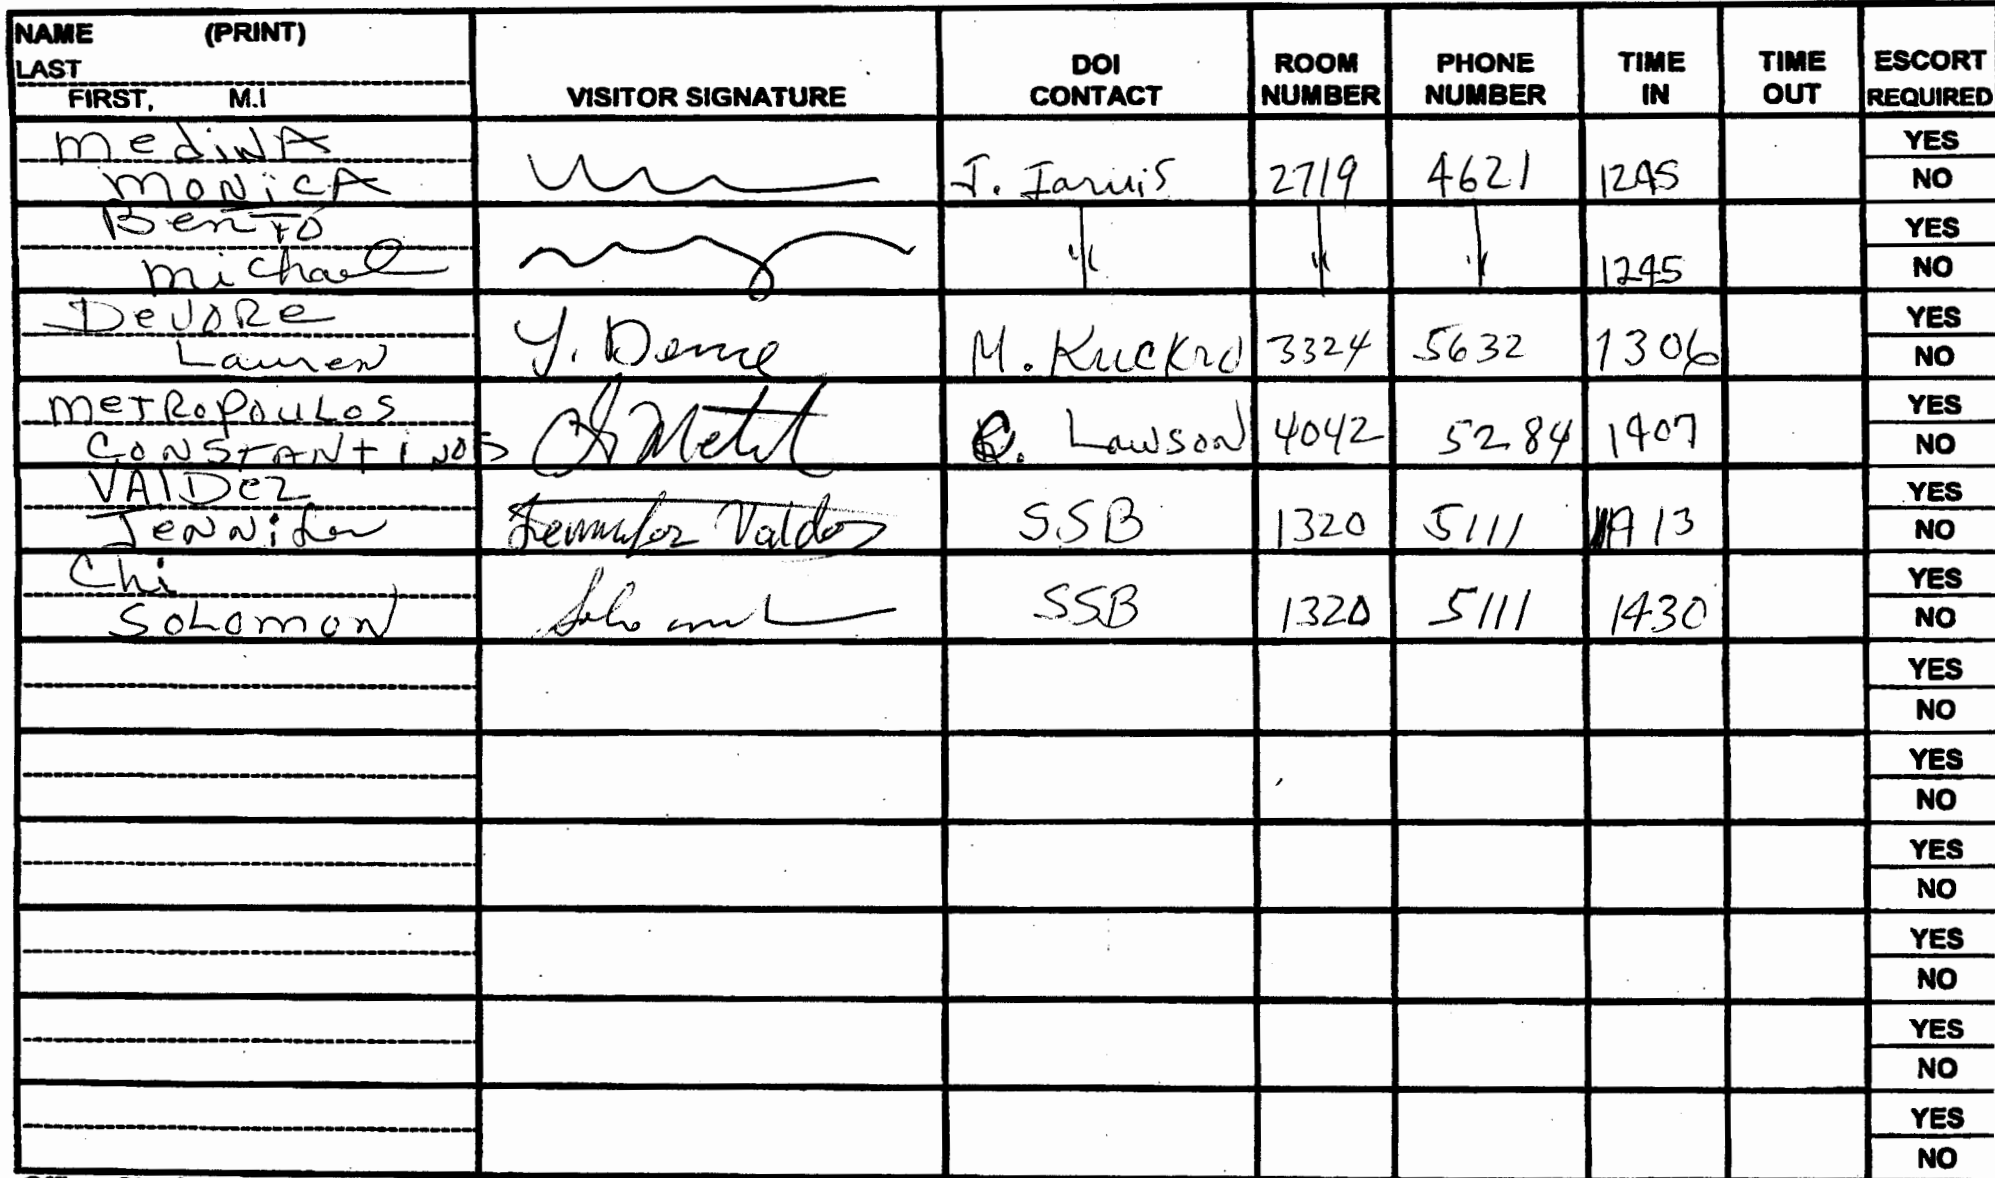 NAME (PRINT)
LAST
FIRST, M.I
VISITOR SIGNATURE
DOI CONTACT
ROOM NUMBER
PHONE NUMBER
TIME IN
TIME OUT
ESCORT REQUIRED
MedinA
MONicA
J. Jarvis 2719 4621 1245
YES
NO
BenTo
michael
1245
YES
NO
DeVORe
Lauren
M. Kuckro 3324 5632 1306
YES
NO
MeTRoPouLos
CONSTANTINOS
Lawson 4042 5284 1407
YES
NO
VAlDez
JeNNifer
Jennifer Valdez SSB 1320 5111 1413
YES
NO
Chi
SoLomoN
SSB 1320 5111 1430
YES
NO
YES
NO
YES
NO
YES
NO
YES
NO
YES
NO
YES
NO